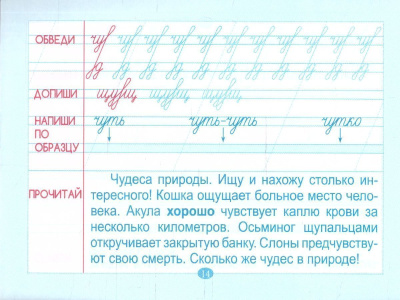 ОБВЕДИ чув чув чув чув чув чув чув чув чув чув
ДОПИШИ
НАПИШИ ПО ОБРАЗЦУ чуть чуть-чуть чутко
ПРОЧИТАЙ
Чудеса природы. Ищу и нахожу столько ин-
тересного! Кошка ощущает больное место чело-
века. Акула хорошо чувствует каплю крови за
несколько километров. Осьминог щупальцами
откручивает закрытую банку. Слоны предчувству-
ют свою смерть. Сколько же чудес в природе!
14